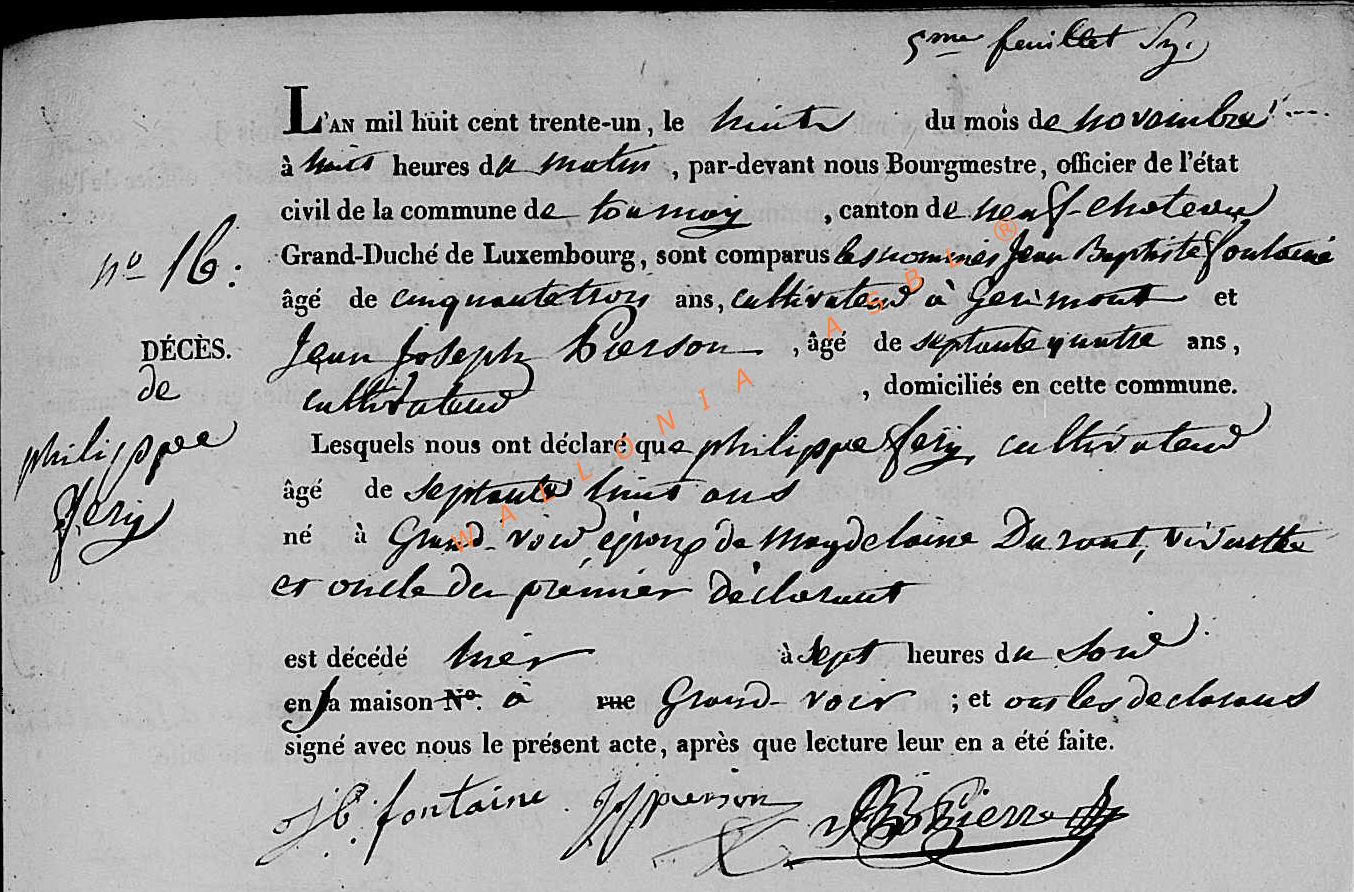 5me feuillet
L'AN mil huit cent trente-un, le huite du mois de novembre
à huit heures du matin, par-devant nous Bourgmestre, officier de l'état
civil de la commune de tournay, canton de neuf-chateau
Grand-Duché de Luxembourg, sont comparus les nommés Jean Baptiste fontaine
âgé de cinquantetrois ans, cultivateur à Gerimont et
Jean Joseph Pierson, âgé de septantequatre ans,
cultivateur, domiciliés en cette commune.
no 16:
DÉCÈS.
de
philippe
fery
Lesquels nous ont déclaré que philippe fery cultivateur
âgé de septante huit ans
né à Grand-voir époux de Magdelaine Durant, vivante
et oncle du premier déclarant
est décédé hier à sept heures du soir
en sa maison No. à rue Grand-voir ; et ont les declarans
signé avec nous le présent acte, après que lecture leur en a été faite.
JB fontaine JJpierson Pierre
WALLONIA ASBL ®